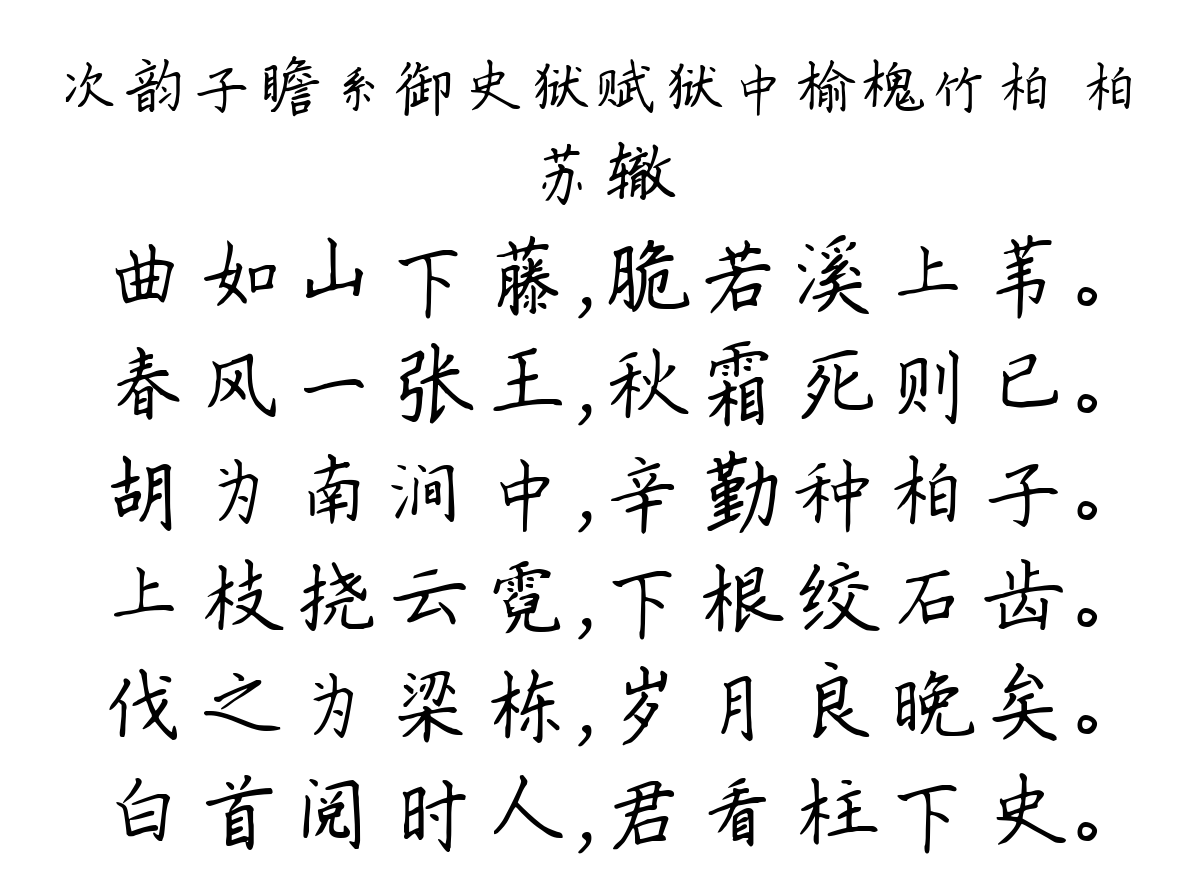 次韵子瞻系御史狱赋狱中榆槐竹柏 柏
苏辙
曲如山下藤,脆若溪上苇。
春风一张王,秋霜死则已。
胡为南涧中,辛勤种柏子。
上枝挠云霓,下根绞石齿。
伐之为梁栋,岁月良晚矣。
白首阅时人,君看柱下史。